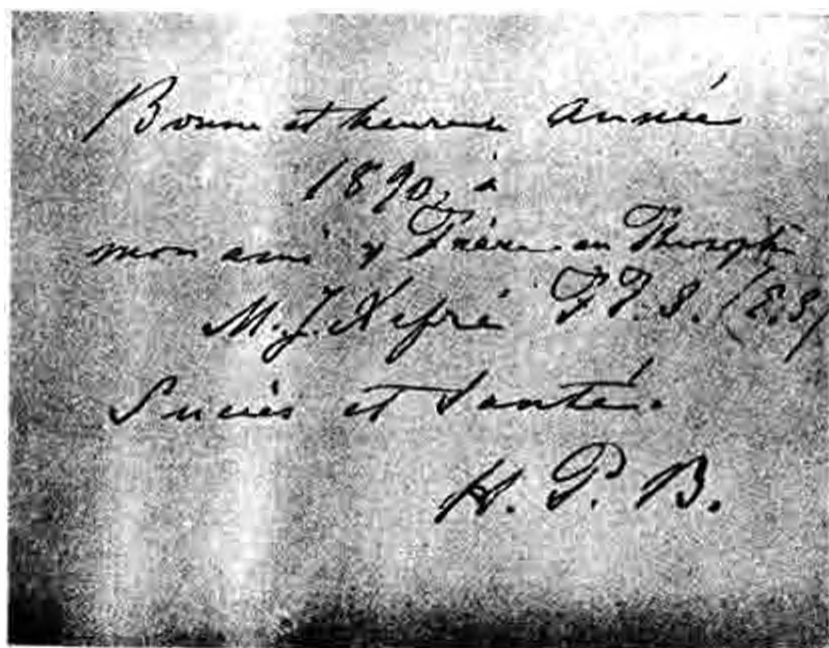 Bonne et heureuse année
1890, à
mon ami & Frère en Theosophie
M. J. F.T.S. (E.S)
Succès et Santé.
H. P. B.